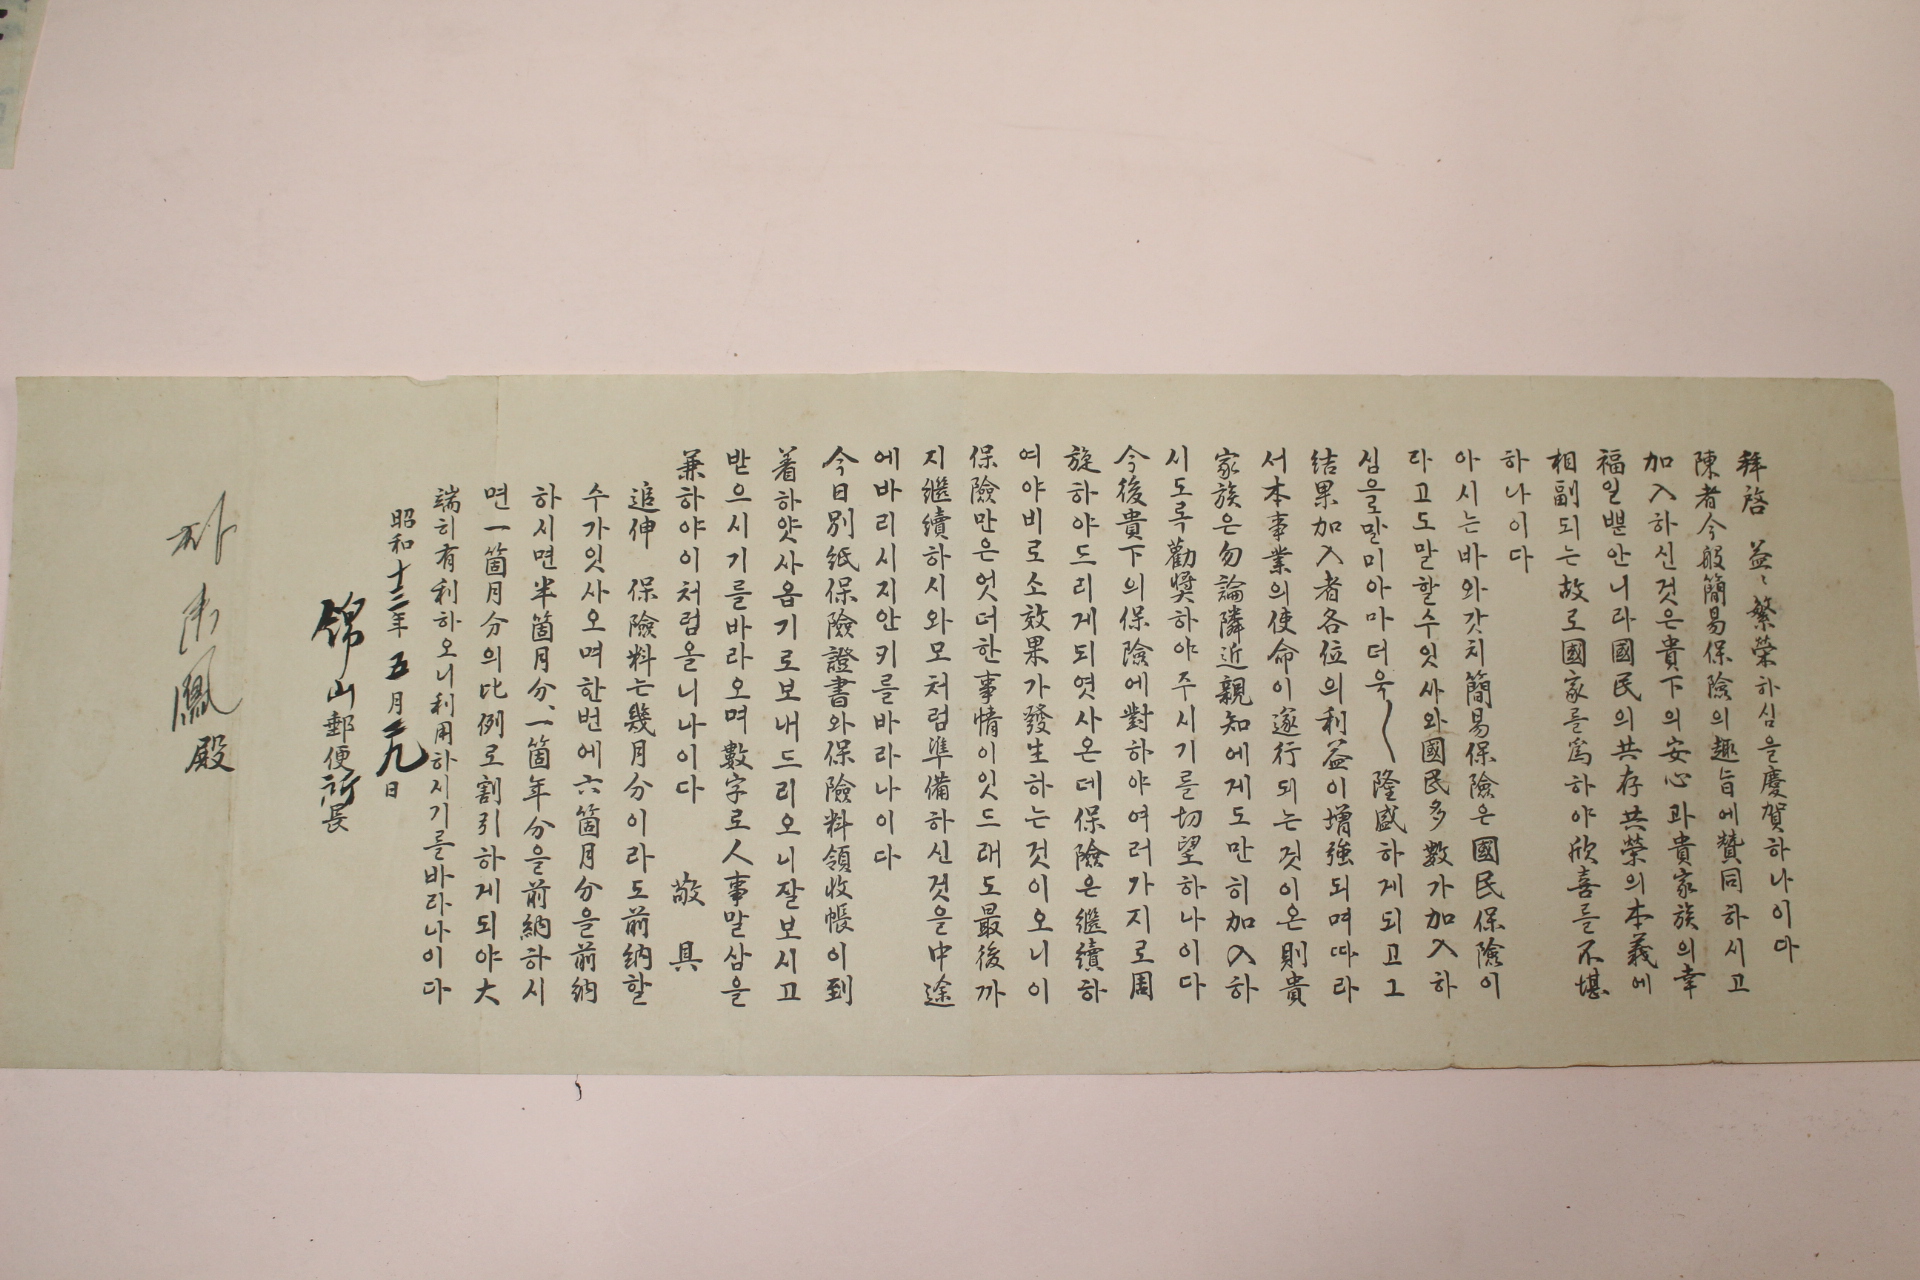 拜啓 益〻繁榮하심을慶賀하나이다
陳者今般簡易保險의趣旨에贊同하시고
加入하신것은貴下의安心과貴家族의幸
福일뿐안니라國民의共存共榮의本義에
相副되는故로國家를爲하야欣喜를不堪
하나이다
아시는바와갓치簡易保險은國民保險이
라고도말할수잇사와國民多數가加入하
심을말미아마더욱〱隆盛하게되고그
結果加入者各位의利益이增强되며따라
서本事業의使命이遂行되는것이온則貴
家族은勿論隣近親知에게도만히加入하
시도록勸奬하야주시기를切望하나이다
今後貴下의保險에對하야여러가지로周
旋하야드리게되엿사온데保險은繼續하
여야비로소效果가發生하는것이오니이
保險만은엇더한事情이잇드래도最後까
지繼續하시와모처럼準備하신것을中途
에바리시지안키를바라나이다
今日別紙保險證書와保險料領收帳이到
着하얏사옵기로보내드리오니잘보시고
받으시기를바라오며數字로人事말삼을
兼하야이처럼올니나이다 敬具
追伸 保險料는幾月分이라도前納할
수가잇사오며한번에六箇月分을前納
하시면半箇月分、一箇年分을前納하시
면一箇月分의比例로割引하게되야大
端히有利하오니利用하시기를바라나이다
昭和十三年五月二九日
錦山郵便所長
鳳殿